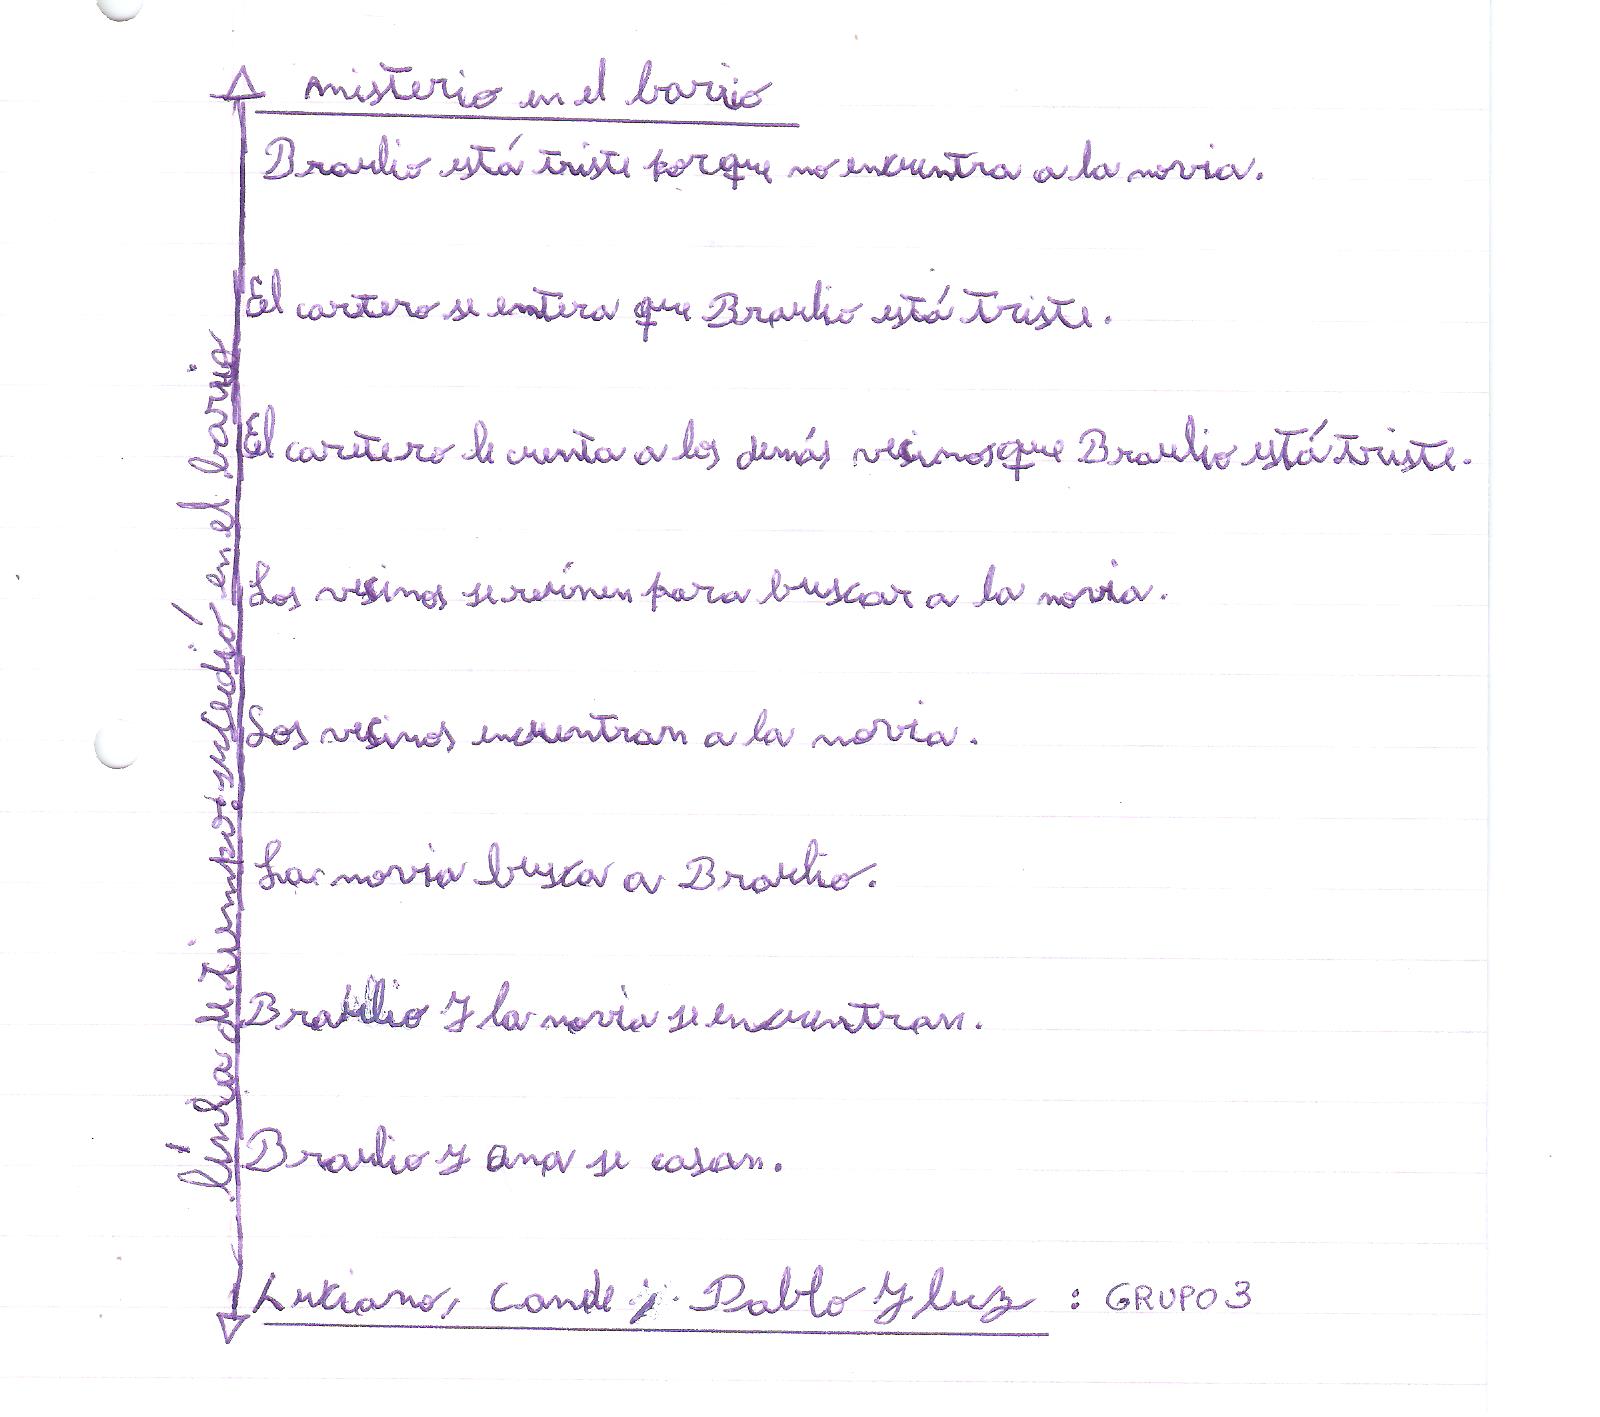 misterio en el barrio
Braulio está triste porque no encuentra a la novia.
El cartero se entera que Braulio está triste.
El caretero le cuenta a los demás vecinos que Braulio está triste.
Los vecinos se reúnen para buscar a la novia.
Los vecinos encuentran a la novia.
La novia busca a Braulio.
Braulio y la novia se encuentran.
Braulio y ana se casan.
Luciano, Cande Pablo y luz : GRUPO 3
línha de tiempo: en el barrio